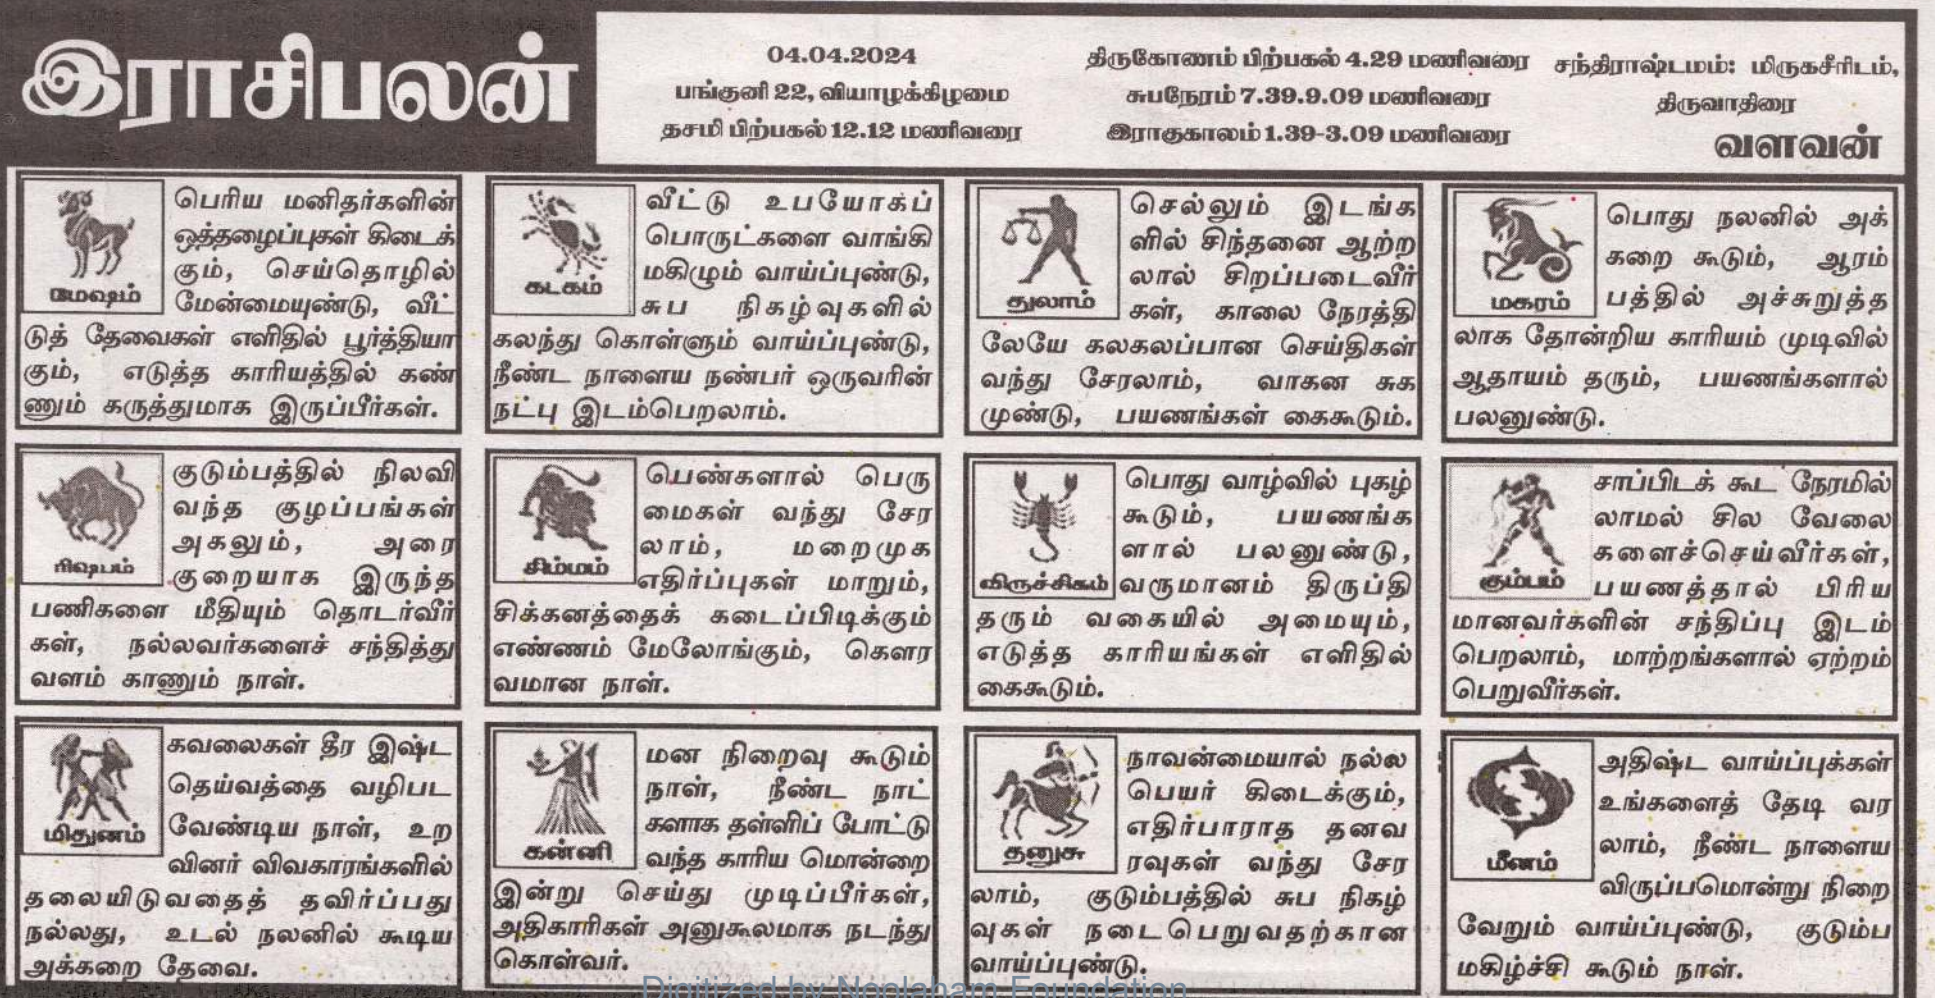 இராசிபலன்
04.04.2024
பங்குனி 22, வியாழக்கிழமை
தசமி பிற்பகல் 12.12 மணிவரை
திருகோணம் பிற்பகல் 4.29 மணிவரை
சுபநேரம் 7.39.9.09 மணிவரை
இராகுகாலம் 1.39-3.09 மணிவரை
சந்திராஷ்டமம்: மிருகசீரிடம்,
திருவாதிரை
வளவன்
மேஷம்
பெரிய மனிதர்களின்
ஒத்தழைப்புகள் கிடைக்
கும், செய்தொழில்
மேன்மையுண்டு, வீட்
டுத் தேவைகள் எளிதில் பூர்த்தியா
கும், எடுத்த காரியத்தில் கண்
ணும் கருத்துமாக இருப்பீர்கள்.
ரிஷபம்
குடும்பத்தில் நிலவி
வந்த குழப்பங்கள்
அகலும், அரை
குறையாக இருந்த
பணிகளை மீதியும் தொடர்வீர்
கள், நல்லவர்களைச் சந்தித்து
வளம் காணும் நாள்.
மிதுனம்
கவலைகள் தீர இஷ்ட
தெய்வத்தை வழிபட
வேண்டிய நாள், உற
வினர் விவகாரங்களில்
தலையிடுவதைத் தவிர்ப்பது
நல்லது, உடல் நலனில் கூடிய
அக்கறை தேவை.
கடகம்
வீட்டு உபயோகப்
பொருட்களை வாங்கி
மகிழும் வாய்ப்புண்டு,
சுப நிகழ்வுகளில்
கலந்து கொள்ளும் வாய்ப்புண்டு,
நீண்ட நாளைய நண்பர் ஒருவரின்
நட்பு இடம்பெறலாம்.
சிம்மம்
பெண்களால் பெரு
மைகள் வந்து சேர
லாம், மறைமுக
எதிர்ப்புகள் மாறும்,
சிக்கனத்தைக் கடைப்பிடிக்கும்
எண்ணம் மேலோங்கும், கௌர
வமான நாள்.
கன்னி
மன நிறைவு கூடும்
நாள், நீண்ட நாட்
களாக தள்ளிப் போட்டு
வந்த காரிய மொன்றை
இன்று செய்து முடிப்பீர்கள்,
அதிகாரிகள் அனுகூலமாக நடந்து
கொள்வர்.
துலாம்
செல்லும் இடங்க
ளில் சிந்தனை ஆற்ற
லால் சிறப்படைவீர்
கள், காலை நேரத்தி
லேயே கலகலப்பான செய்திகள்
வந்து சேரலாம், வாகன சுக
முண்டு, பயணங்கள் கைகூடும்.
விருச்சிகம்
பொது வாழ்வில் புகழ்
கூடும், பயணங்க
ளால் பலனுண்டு,
வருமானம் திருப்தி
தரும் வகையில் அமையும்,
எடுத்த காரியங்கள் எளிதில்
கைகூடும்.
தனுசு
நாவன்மையால் நல்ல
பெயர் கிடைக்கும்,
எதிர்பாராத தனவ
ரவுகள் வந்து சேர
லாம், குடும்பத்தில் சுப நிகழ்
வுகள் நடைபெறுவதற்கான
வாய்ப்புண்டு.
மகரம்
பொது நலனில் அக்
கறை கூடும், ஆரம்
பத்தில் அச்சுறுத்த
லாக தோன்றிய காரியம் முடிவில்
ஆதாயம் தரும், பயணங்களால்
பலனுண்டு.
கும்பம்
சாப்பிடக் கூட நேரமில்
லாமல் சில வேலை
களைச்செய்வீர்கள்,
பயணத்தால் பிரிய
மானவர்களின் சந்திப்பு இடம்
பெறலாம், மாற்றங்களால் ஏற்றம்
பெறுவீர்கள்.
மீனம்
அதிஷ்ட வாய்ப்புக்கள்
உங்களைத் தேடி வர
லாம், நீண்ட நாளைய
விருப்பமொன்று நிறை
வேறும் வாய்ப்புண்டு, குடும்ப
மகிழ்ச்சி கூடும் நாள்.
Digitized by Noolaham Foundation